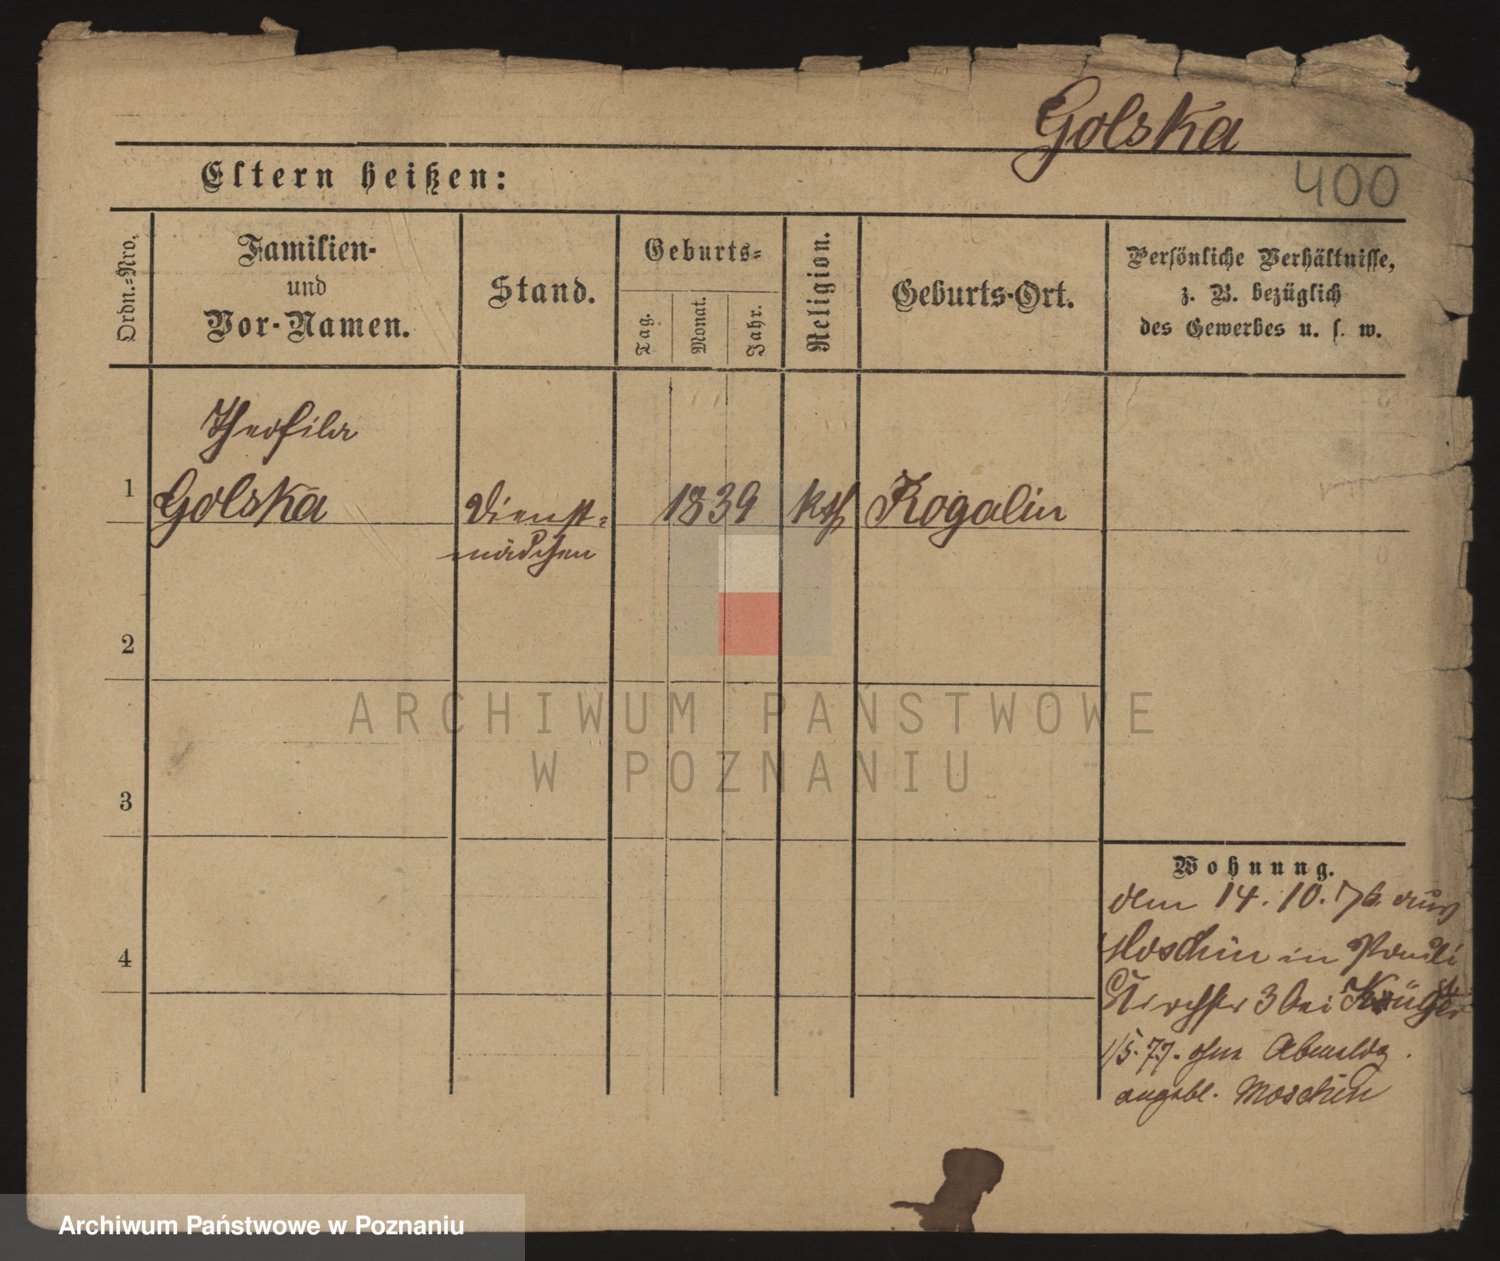 Golska
400
Eltern heißen:
Ordn.-Nro.
Familien-
und
Vor-Namen.
Stand.
Geburts-
Tag.
Monat.
Jahr.
Religion.
Geburts-Ort.
Persönliche Verhältnisse,
z. B. bezüglich
des Gewerbes u. s. w.
Theofila
1 Golska Dienst- 1839 kth Rogalin
mädchen
2
ARCHIWUM PAŃSTWOWE
W POZNANIU
3
Wohnung.
dem 14.10.76 aus
Moschin in Pauli
4
Kirchstr 3 bei Krüger
1/5.77. ohne Abmeldg.
angebl. Moschin
Archiwum Państwowe w Poznaniu